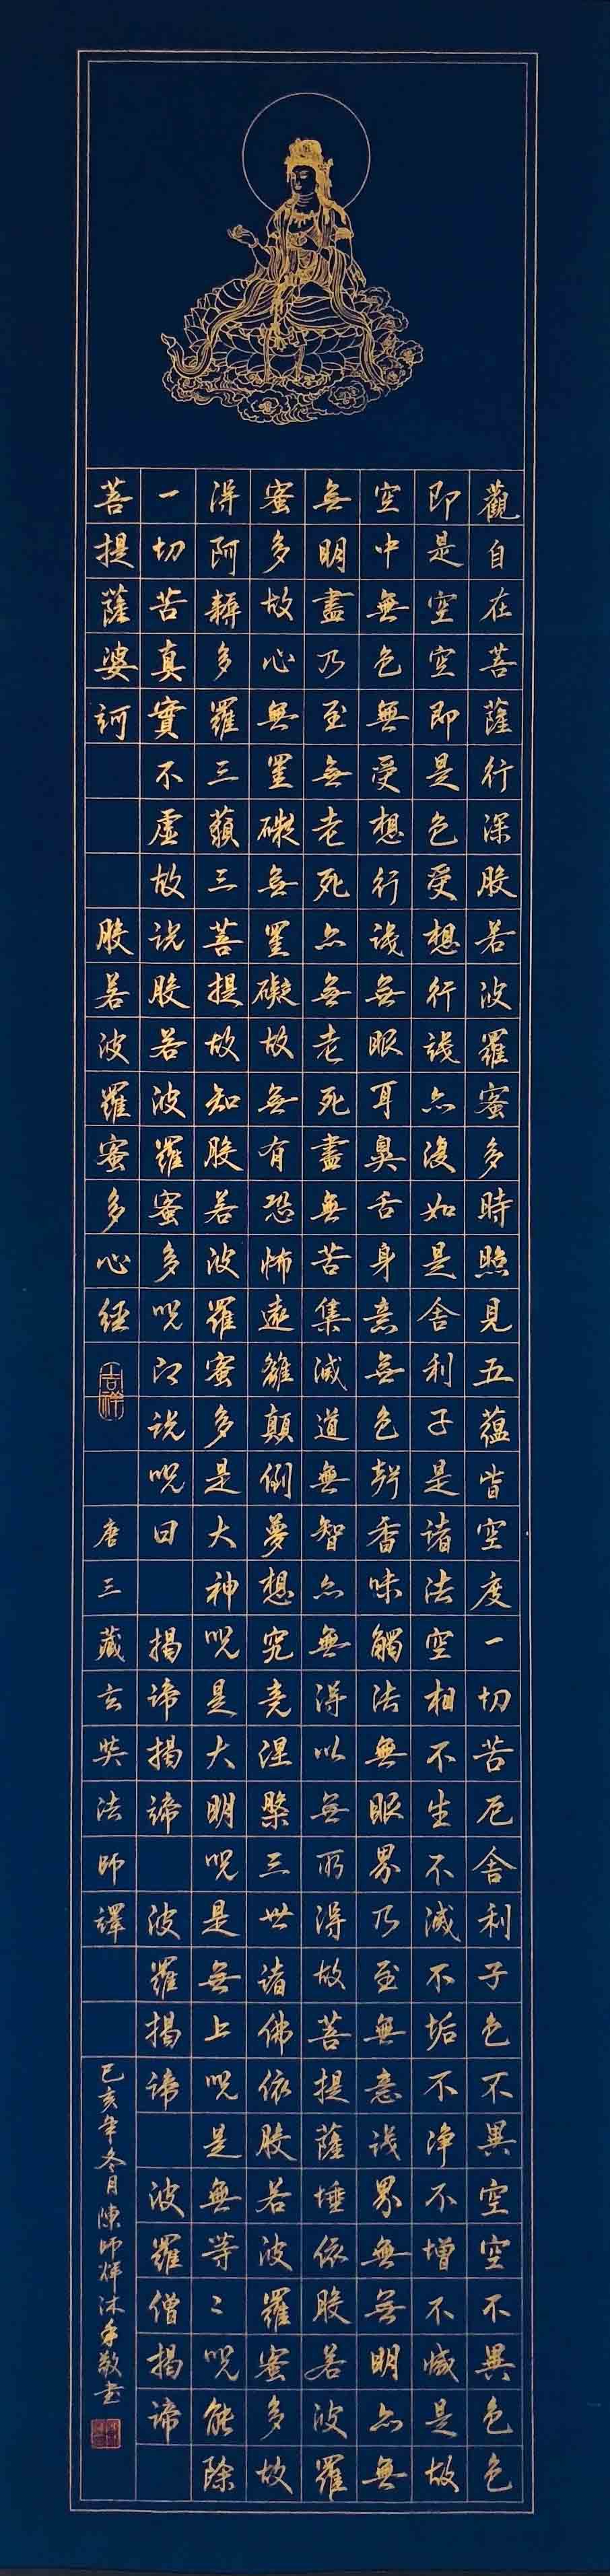 觀自在菩薩行深般若波羅蜜多時照見五蘊皆空度一切苦厄舍利子色不異空空不異色色
即是空空即是色受想行識亦復如是舍利子是諸法空相不生不滅不垢不净不增不減是故
空中無色無受想行識無眼耳鼻舌身意無色聲香味觸法無眼界乃至無意識界無無明亦無
無明盡乃至無老死亦無老死盡無苦集滅道無智亦無得以無所得故菩提薩埵依般若波羅
蜜多故心無罣礙無罣礙故無有恐怖遠離顛倒夢想究竟涅槃三世諸佛依般若波羅蜜多故
得阿耨多羅三藐三菩提故知般若波羅蜜多是大神咒是大明咒是無上咒是無等〻咒能除
一切苦真實不虛故說般若波羅蜜多咒即說咒曰 揭諦揭諦 波羅揭諦 波羅僧揭諦
菩提薩婆訶 般若波羅蜜多心經 吉祥 唐三藏玄奘法師譯 己亥年冬月陳師輝沐手敬書